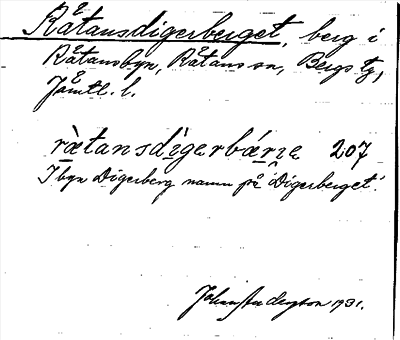 Råtansdigerberget, berg i
Råtansbyn, Råtans sn, Bergs tg,
Jämtl. l.
rætansdigerbærje 207
I byn Digerberg namn på "Digerberget".
Johan Anderson 1931.